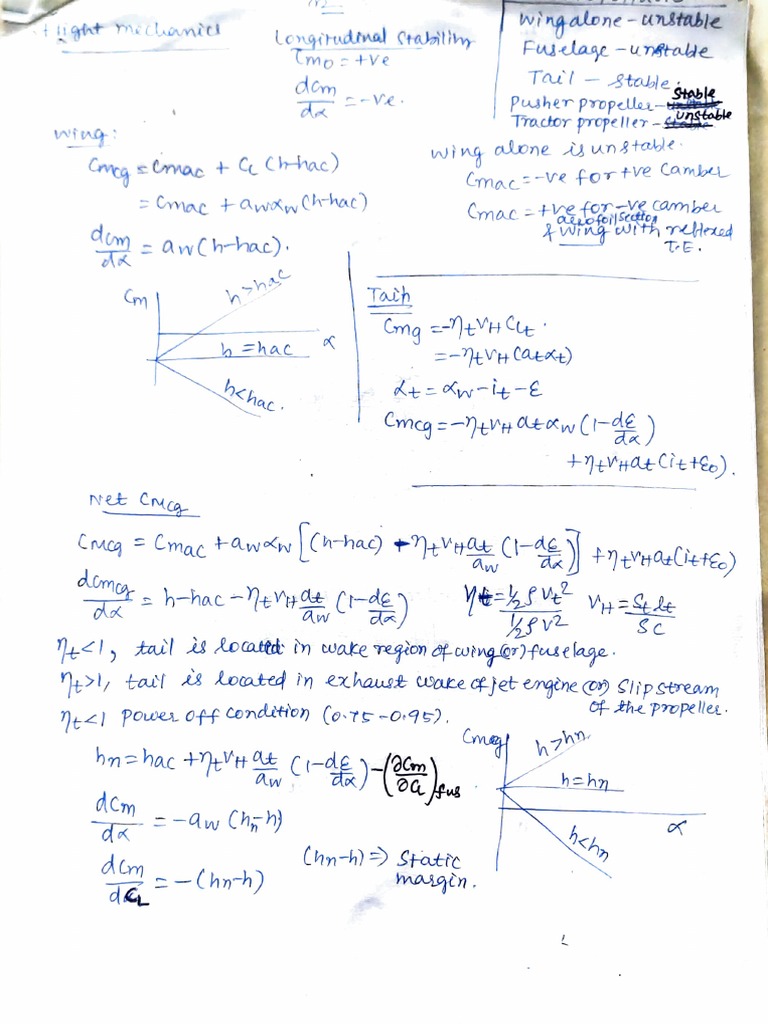 Flight mechanics
Longitudinal Stability
Cm₀ = +ve
dCm/dα = -ve.
Wing alone - unstable
Fuselage - unstable
Tail - stable.
Pusher propeller - stable
Tractor propeller - unstable
Wing:
Cmcg = Cmac + CL (h-hac)
= Cmac + aw αw (h-hac)
dCm/dα = aw (h-hac).
wing alone is unstable.
Cmac = -ve for +ve camber
Cmac = +ve for -ve camber
aerofoil section
& wing with reflexed
T.E.
Cm
h>hac
h = hac
α
h<hac.
Tail:
Cmg = -ηt VH CLt.
= -ηt VH (at αt)
αt = αw - it - ε
Cmcg = -ηt VH at αw (1 - dε/dα)
+ ηt VH at (it + ε₀).
Net CMcg
CMcg = Cmac + aw αw [(h-hac) - ηt VH at/aw (1 - dε/dα)] + ηt VH at (it + ε₀)
dCmcg/dα = h - hac - ηt VH at/aw (1 - dε/dα)
ηt = ½ρVt²/½ρV²
VH = St lt/SC
ηt<1, tail is located in wake region of wing (or) fuselage.
ηt>1, tail is located in exhaust wake of jet engine (or) slip stream
of the propeller.
ηt<1 power off condition (0.75-0.95).
hn = hac + ηt VH at/aw (1 - dε/dα) - (∂Cm/∂CL)fus
dCm/dα = -aw (hn-h)
dCm/dCL = -(hn-h)
(hn-h) => Static
margin.
Cmcg
h>hn.
h=hn
α
h<hn